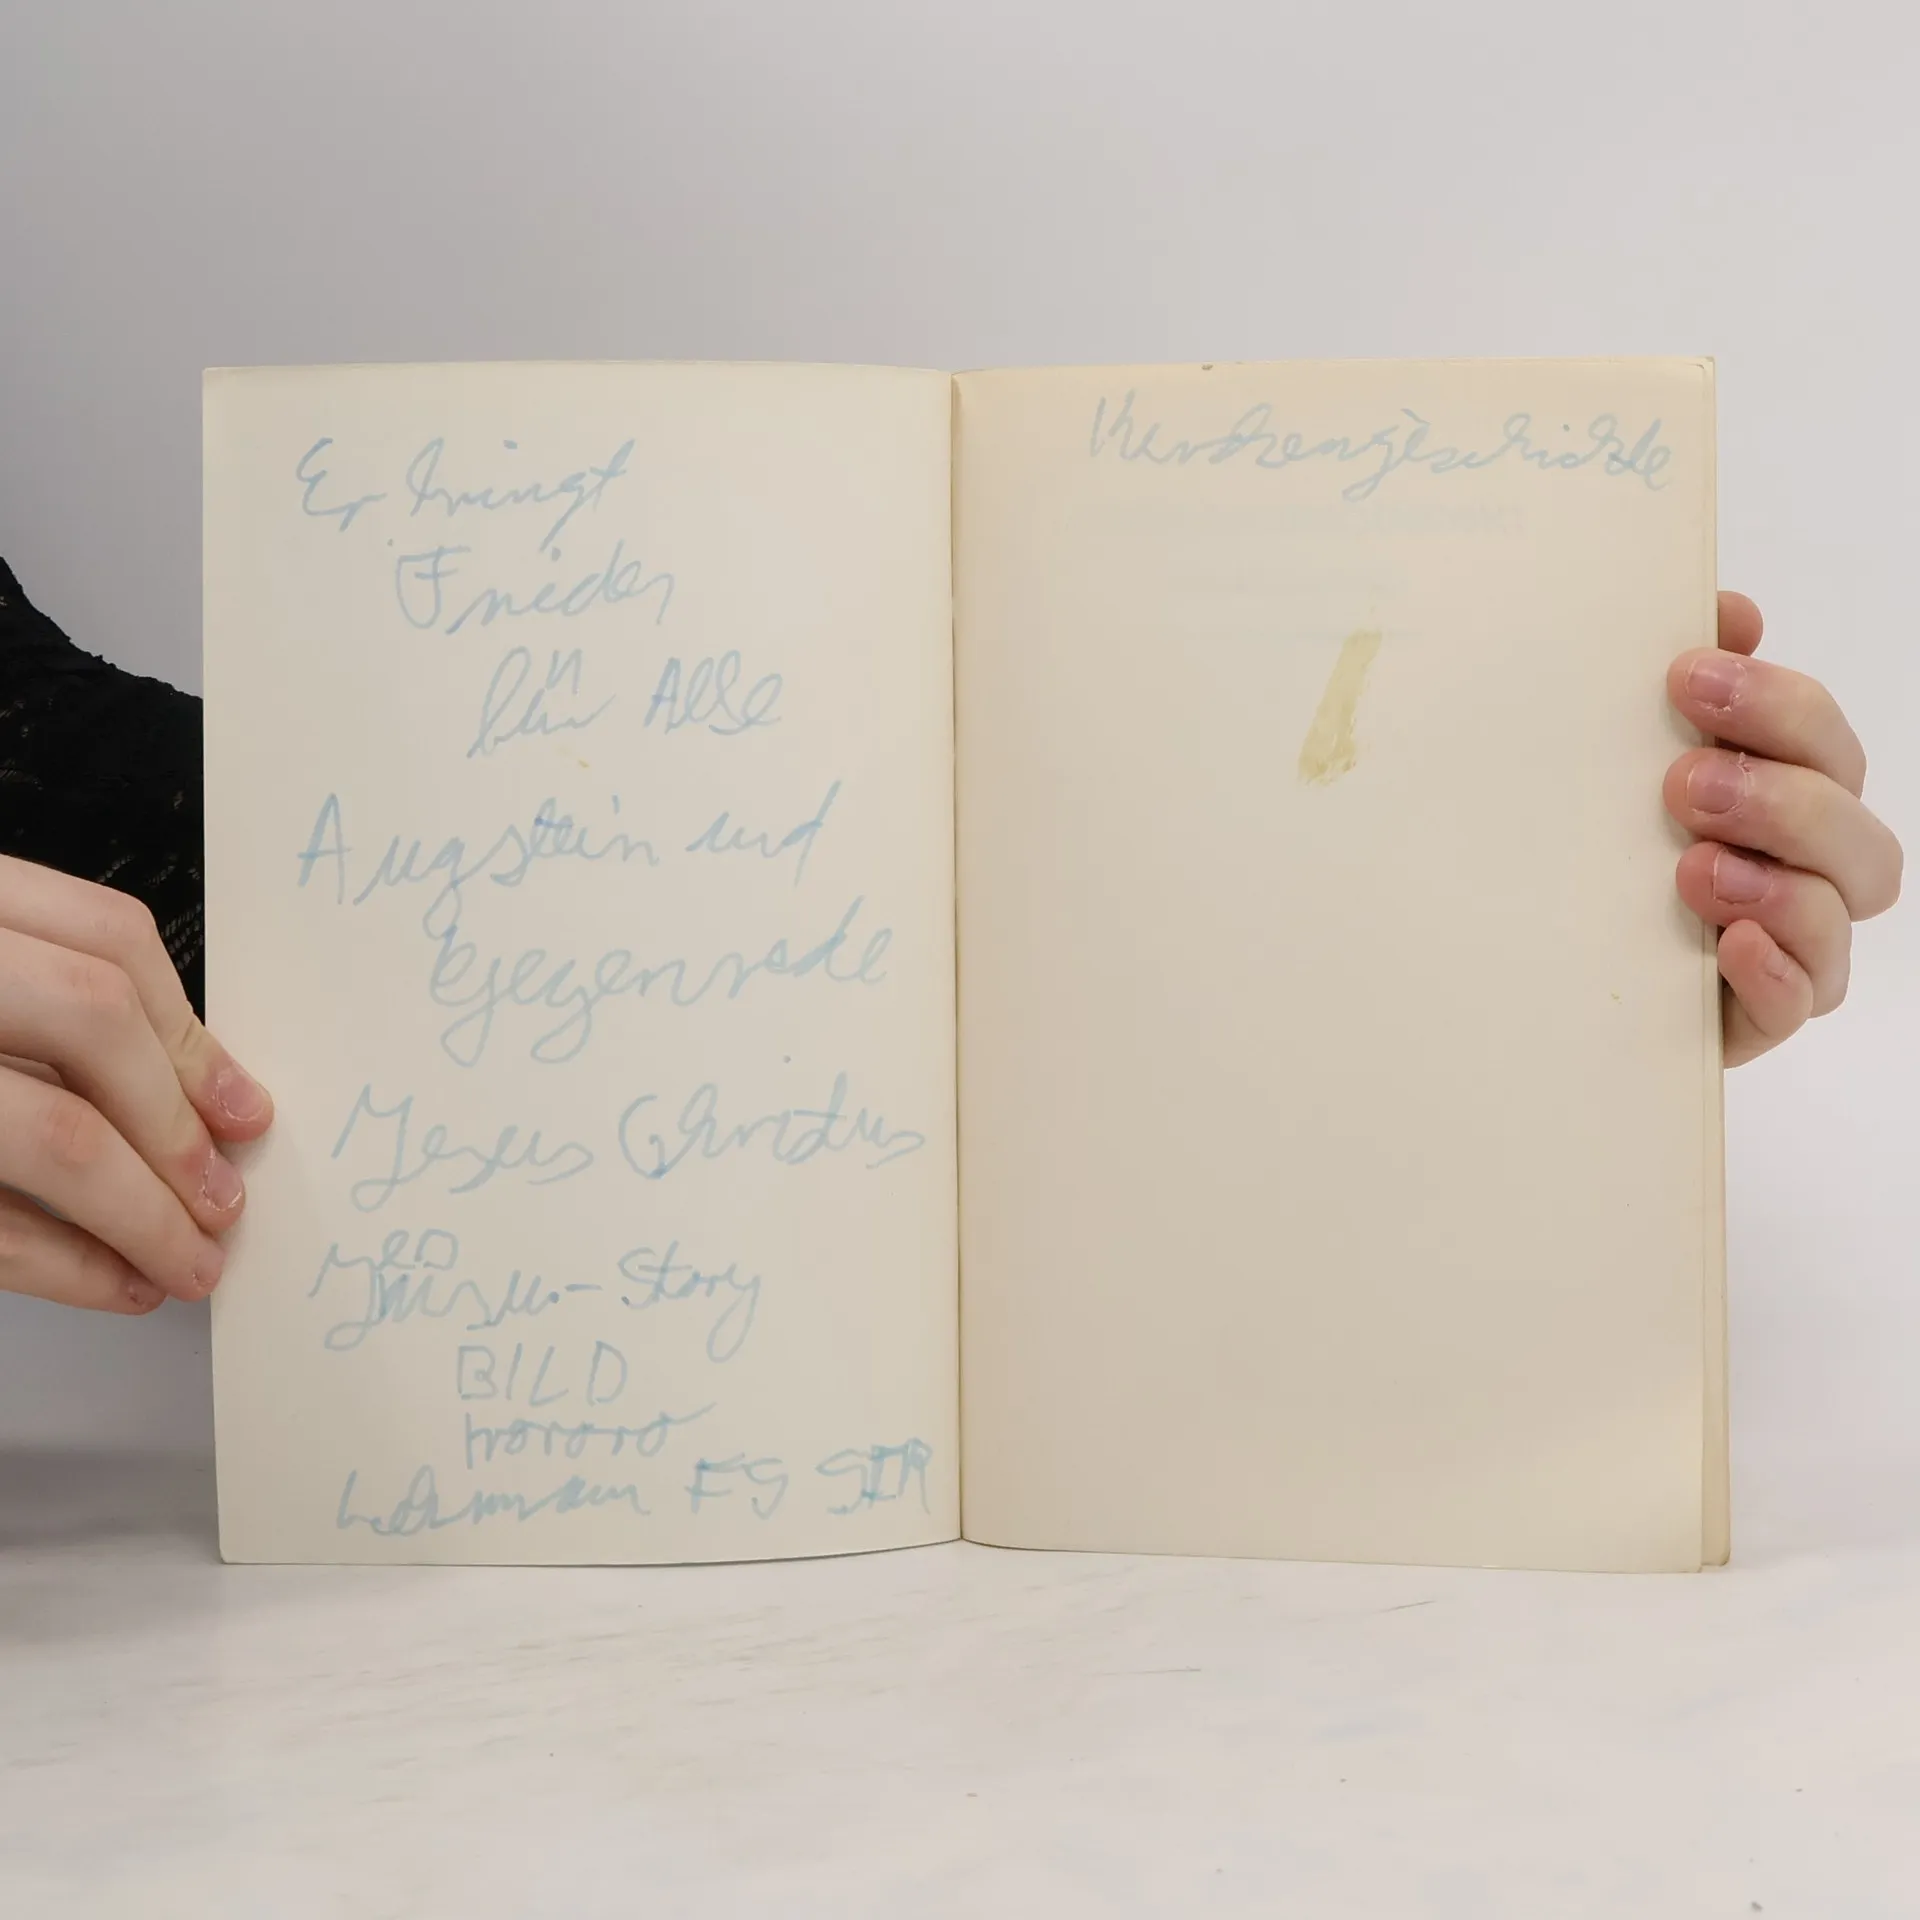 Er bringt
Frieden
für Alle
Augstein und
Gegenrede
Jesus Christus
Jesu-Story
BILD
rororo
Lehmann
Kirchengeschichte